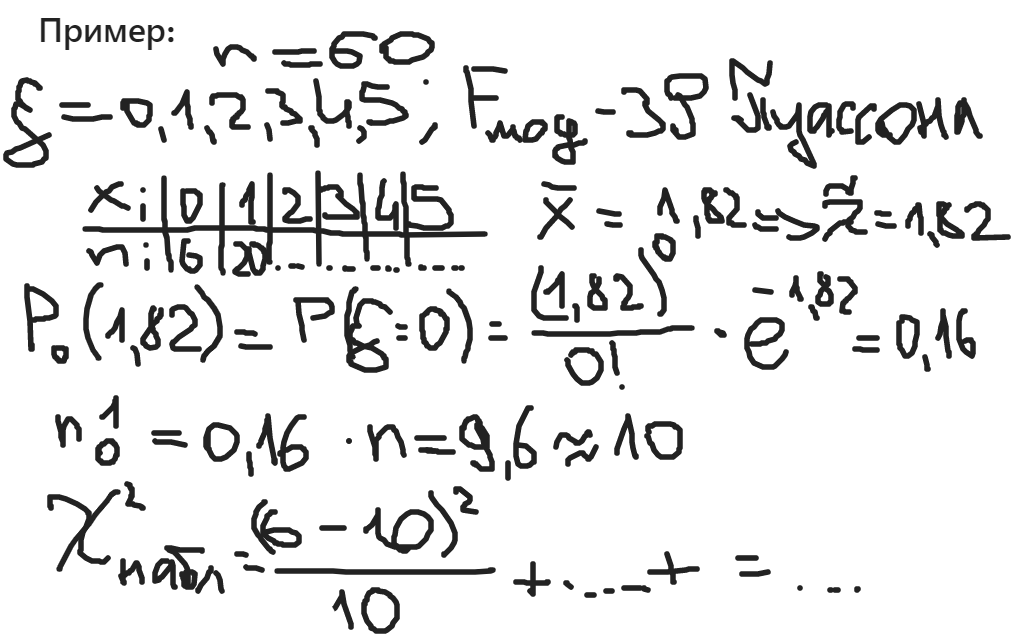 Пример:
n = 60
ξ = 0, 1, 2, 3, 4, 5; Fмод - ЗР Пуассона
xi | 0 | 1 | 2 | 3 | 4 | 5
ni | 6 | 20 ... ... ... ...
x̄ = 1,82 => λ̃ = 1,82
P₀(1,82) = P(ξ=0) = (1,82)⁰ / 0! · e^-1,82 = 0,16
n₀¹ = 0,16 · n = 9,6 ≈ 10
χ² набл = (6 - 10)² / 10 + ... + = ...